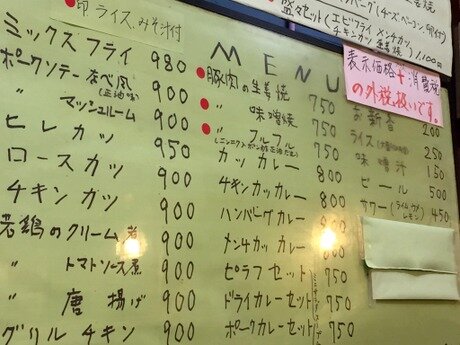 ●印 ライス、みそ汁付
盛々セット(エビフライ メンチカツ
チキンカツ 生姜焼) 1,100円
MENU
表示価格+消費税
の外税扱いです。
ミックスフライ 980
ポークソテー なべ風 900
(正油味)
〃 マッシュルーム 900
ヒレカツ 950
ロースカツ 900
チキンカツ 900
若鶏のクリーム煮 900
〃 トマトソース煮 900
〃 唐揚げ 900
グリルチキン 900
●豚肉の生姜焼 750
●〃 味噌焼 750
●〃 フルフル 750
カツカレー 800
チキンカツカレー 800
ハンバーグカレー 800
メンチカツカレー 800
ピラフセット 750
ドライカレーセット 750
ポークカレーセット 750
お新香 200
ライス 250
味噌汁 150
ビール 500
サワー(ライム ウメ レモン) 450